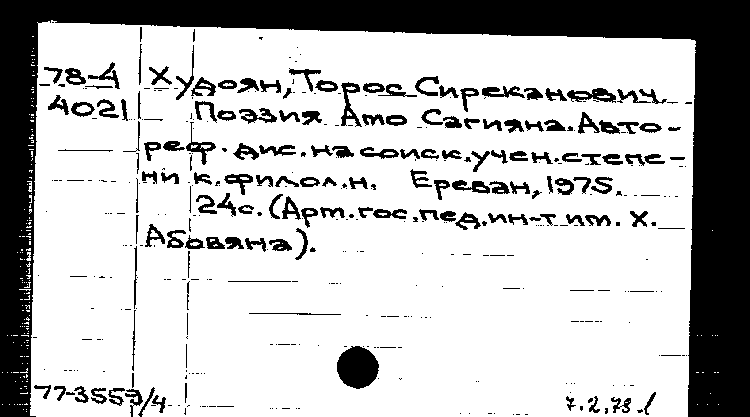 78-4 Худоян, Торос Сиреканович.
4021 Поэзия Амо Сагияна. Авто-
реф. дис. на соиск. учен. степе-
ни к. филол. н. Ереван, 1975.
24с. (Арм. гос. пед. ин-т им. Х.
Абовяна).
77-35559/4